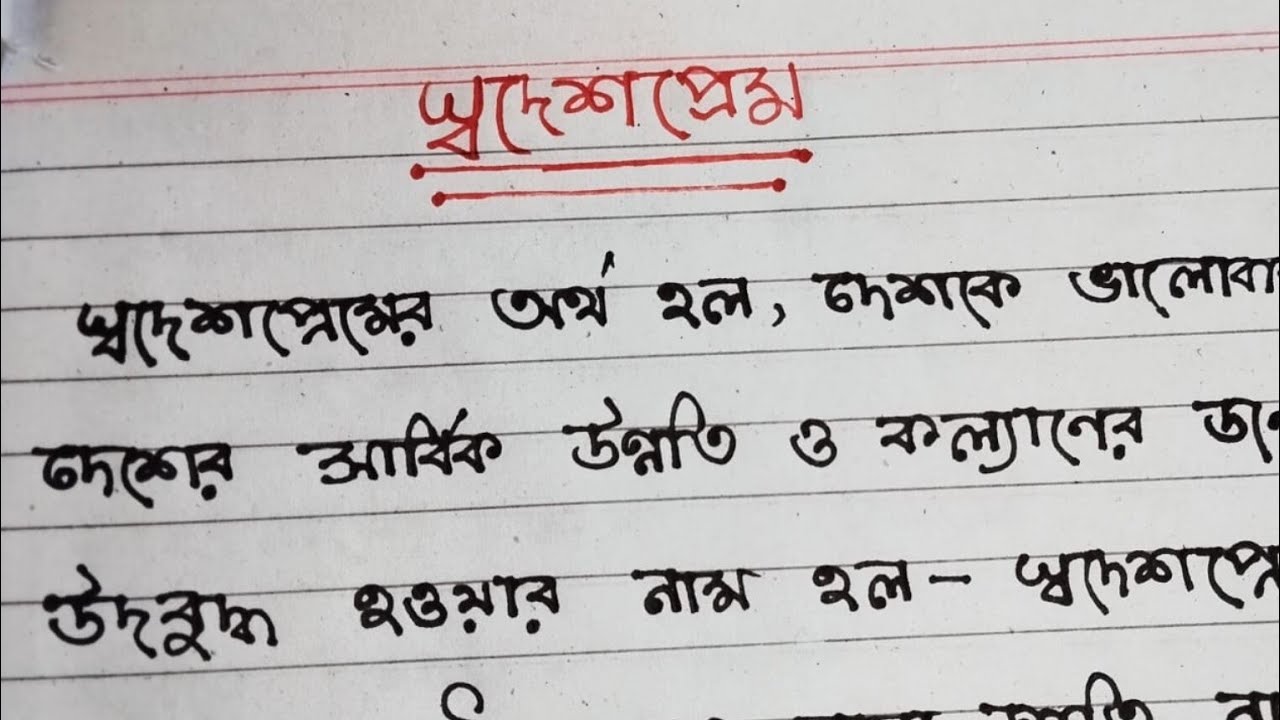 স্বদেশপ্রেম
স্বদেশপ্রেমের অর্থ হল, দেশকে ভালোবা
দেশের সার্বিক উন্নতি ও কল্যানের
উদবুদ্ধ হওয়ার নাম হল - স্বদেশপ্রে